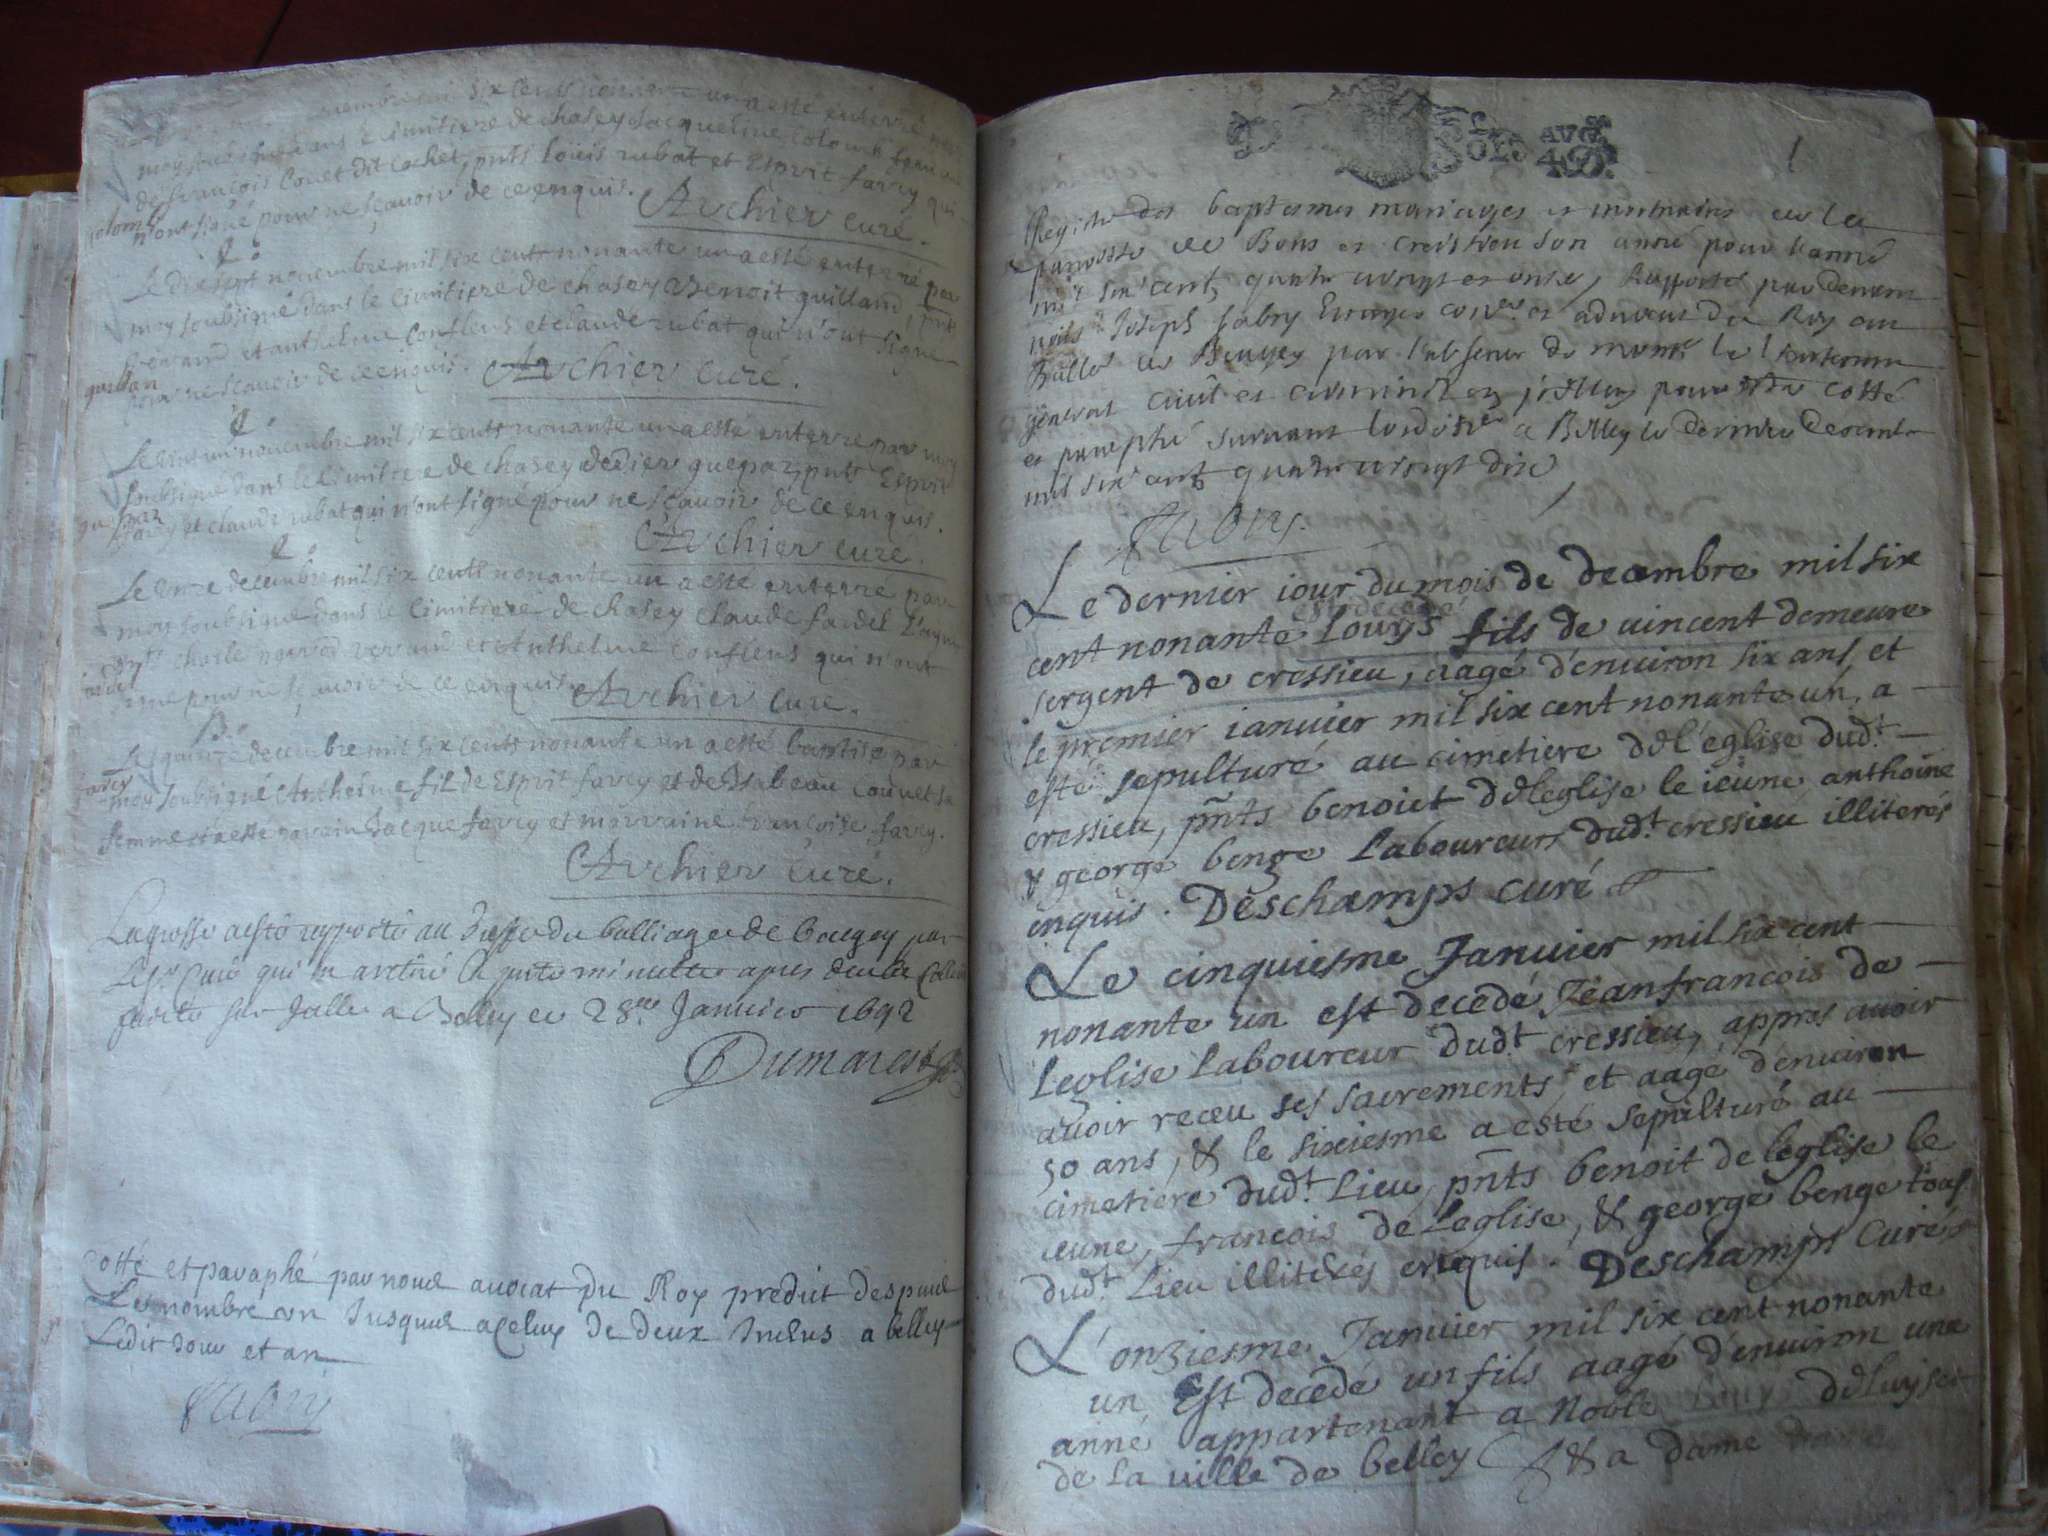 six cents nonante un a esté enterré par
moy soubsigné dans le cimitiere de chasey Jacqueline Colomb femme
de françois Couet dit Cochet, pnts louis rubat et Esprit favey qui
n'ont signé pour ne sçavoir de ce enquis.
Archier curé.
Le dixsept novembre mil six cents nonante un a esté enterré par
moy soubsigné dans le cimitiere de chasey Benoit guilland, pnts
et anthelme Conflens et claude rubat qui n'ont signé
pour ne sçavoir de ce enquis. Archier curé.
Le vint un novembre mil six cents nonante un a esté enterré par moy
soubsigné dans le cimitiere de chasey pnts Esprit
favey et claude rubat qui n'ont signé pour ne sçavoir de ce enquis.
Archier curé.
Le onze decembre mil six cents nonante un a esté enterré par
moy soubsigné dans le cimitiere de chasey Claude fardel
et Anthelme Conflens qui n'ont
signé pour ne sçavoir de ce enquis. Archier curé.
Le quinze decembre mil six cents nonante un a esté baptisé par
moy soubsigné Anthoine fil de Esprit favey et de Isabeau Couuet sa
femme et a esté parain Jacque favey et marraine francoise favey.
favey
Archier curé.
La grosse a esté apporté au Greffe du balliage de Baugey par
Le Sr Curé qui a retiré la pnte minutte apres deüe Colla
faicte par Jalle a Belley ce 28me Janvier 1692
Dumarest
Cotté et paraphé par nous avocat du Roy predit despuis
Le nombre un Jusques a celuy de deux Inclus a belley
Ledit Jour et an
Fabry
SOLS
1
Registre des baptesmes mariages et mortuaires de la
parroisse de Bons et Cressieu son annexe pour l'année
mil six cent quatre vingt et onze, Rapporté par devant
nous Joseph fabry Escuyer conser et advocat du Roy au
Balliage de Beugey par l'absence de monsr le lieutenant
general civil et criminel pour estre cotté
et paraphé suivant lordonce a Belley le dernier decembre
mil six cent quatre vingt dix
Fabry.
Le dernier iour du mois de decembre mil six
cent nonante est decedé Louys fils de vincent demeure
sergent de cressieu, aagé d'enuiron six ans, et
le premier ianuier mil six cent nonante un, a
esté sepulturé au cimetiere de l'eglise dudt
cressieu, pñts benoict de leglise le ieune anthoine
& george benge Laboureurs dudt cressieu illiterés
enquis. Deschamps curé
Le cinquiesme Januier mil six cent
nonante un est decedé Jeanfrancois de
Leglise Laboureur dudt cressieu, appres auoir
auoir receu ses sacrements, et aagé d'enuiron
50 ans, & le sixiesme a esté sepulturé au
cimetiere dudt Lieu, pñts benoit de leglise le
ieune, francois de Leglise, & george benge tous
dudt Lieu illiterés enquis. Deschamps Curé
L'onziesme Januier mil six cent nonante
un Est decedé un fils aagé d'enuiron une
anné appartenant a Noble
de La ville de belley & a dame